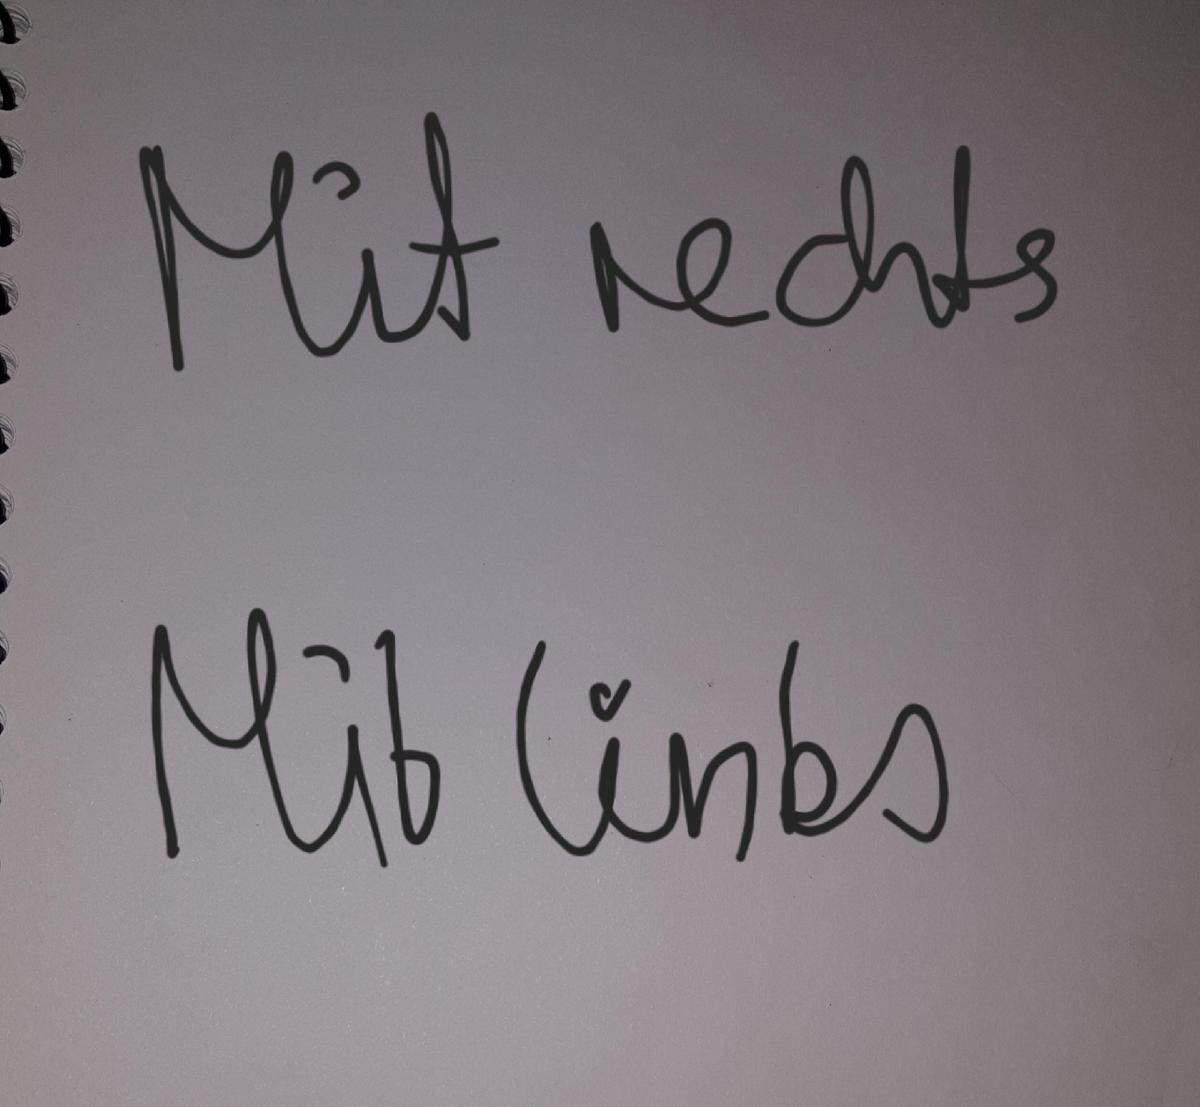 Mit rechts
Mit links